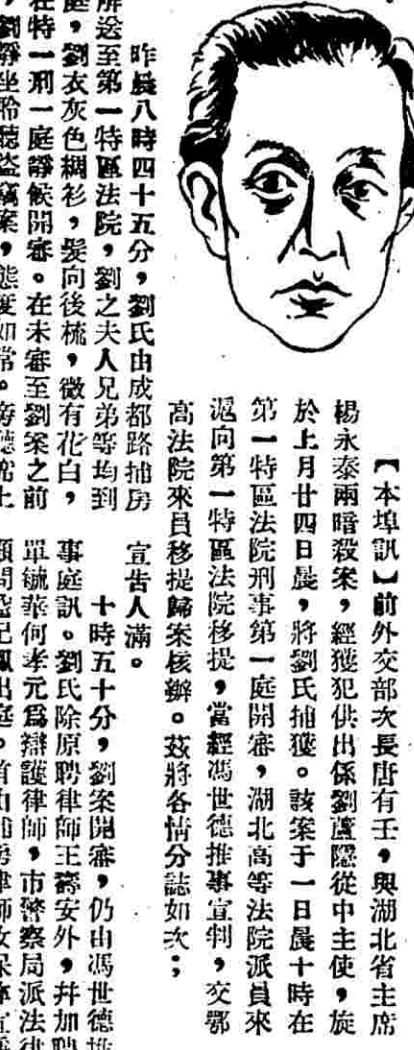 【本埠訊】前外交部次長唐有壬,與湖北省主席
楊永泰兩暗殺案,經獲犯供出係劉蘆隱從中主使,旋
於上月廿四日晨,將劉氏捕獲。該案于一日晨十時在
第一特區法院刑事第一庭開審,湖北高等法院派員來
滬向第一特區法院移提,當經馮世德推事宣判,交鄂
高法院來員移提歸案核辦。茲將各情分誌如次;
昨晨八時四十五分,劉氏由成都路捕房
解送至第一特區法院,劉之夫人兄弟等均到
庭,劉衣灰色綢衫,髮向後梳,微有花白,
在特一刑一庭靜候開審。在未審至劉案之前
,劉靜坐聆聽盜竊案,態度如常。旁聽席上
宣告人滿。
十時五十分,劉案開審,仍由馮世德推
事庭訊。劉氏除原聘律師王壽安外,幷加聘
單毓華何孝元爲辯護律師,市警察局派法律
出庭。首由捕房律師